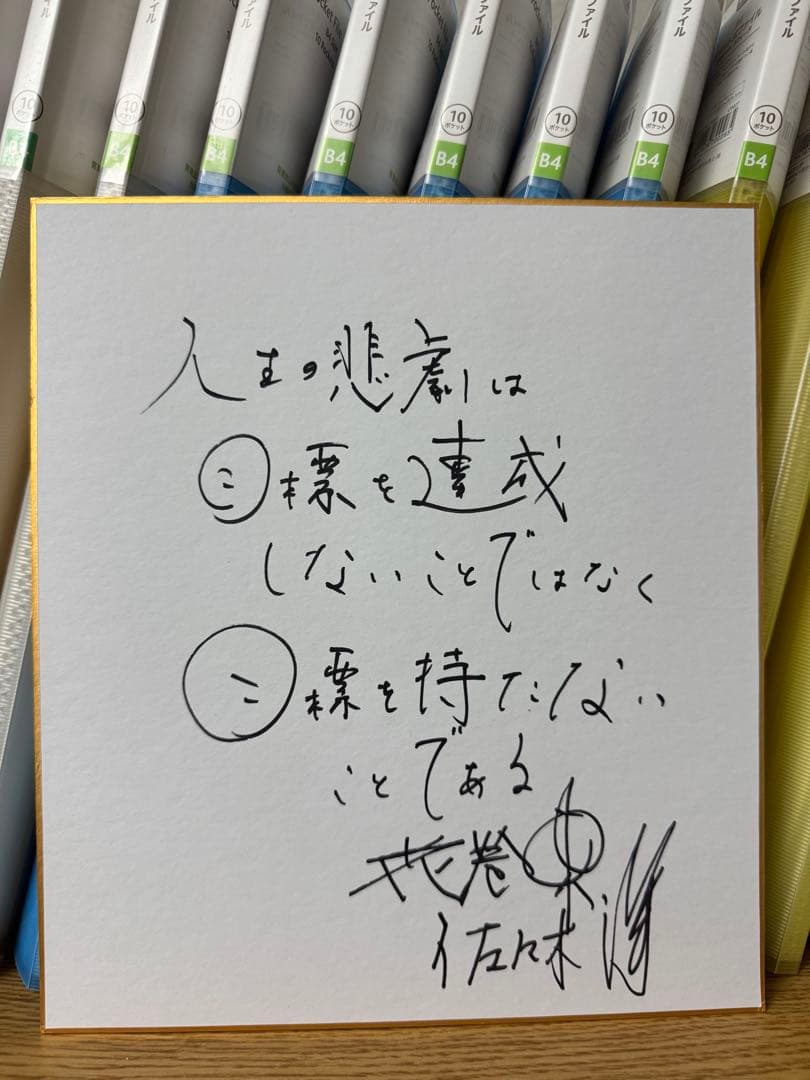 ファイル
ファイル
ファイル
ファイル
ファイル
10 ポケット
10 ポケット
10 ポケット
10 ポケット
10 ポケット
10 ポケット
10 ポケット
10 ポケット
B4
B4
B4
B4
B4
B4
B4
人生の悲劇は
目標を達成
しないことではなく
目標を持たない
ことである
花巻東
佐々木洋